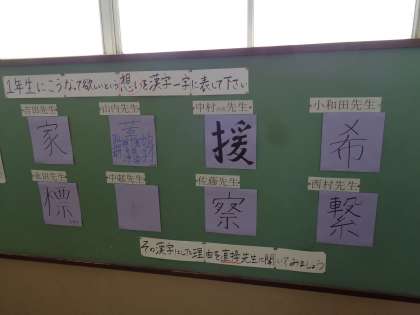 1年生にこうなって欲しいという想いを漢字一字に表して下さい
吉田先生
山内先生
中村先生
小和田先生
家
援
希
金田先生
中越先生
佐藤先生
西村先生
標
察
繋
その漢字にした理由を直接先生に聞いてみましょう